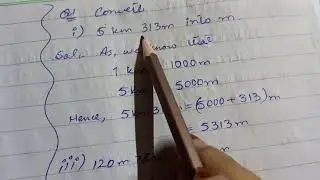 Q1 Convert
i) 5 km 313m into m.
Sol, As, we know that
1 km 1000m
5 km 5000m
Hence, 5 km 313 m = (5000+313) m
= 5313m
iii) 120m